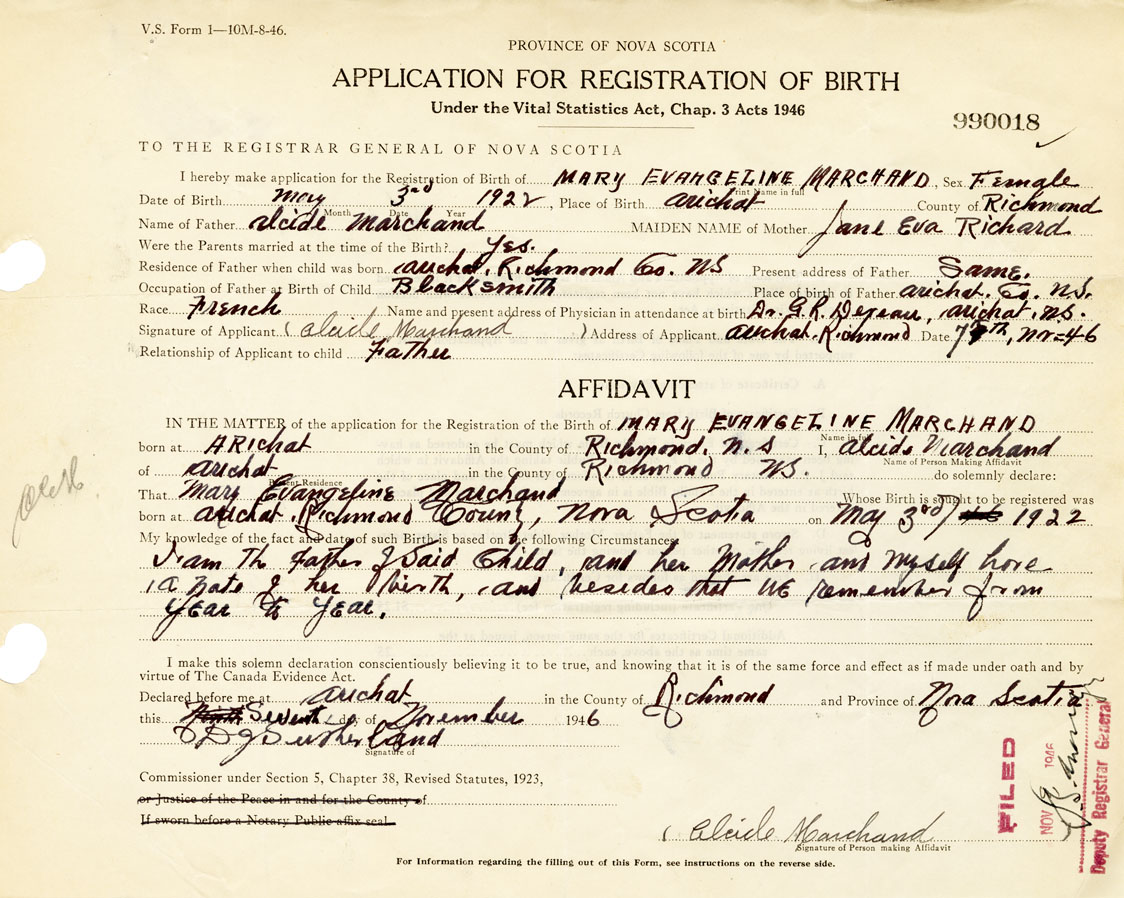 V.S. Form 1—10M-8-46.
PROVINCE OF NOVA SCOTIA
APPLICATION FOR REGISTRATION OF BIRTH
Under the Vital Statistics Act, Chap. 3 Acts 1946
990018
TO THE REGISTRAR GENERAL OF NOVA SCOTIA
I hereby make application for the Registration of Birth of MARY EVANGELINE MARCHAND, Sex Female
Print Name in full
Date of Birth May 3rd 1922, Place of Birth arichat County of Richmond
Month Date Year
Name of Father alcide Marchand MAIDEN NAME of Mother Jane Eva Richard
Were the Parents married at the time of the Birth? Yes.
Residence of Father when child was born arichat, Richmond Co. NS Present address of Father Same.
Occupation of Father at Birth of Child Blacksmith Place of birth of Father arichat. Co. N.S.
Race French Name and present address of Physician in attendance at birth Dr. G.R. arichat, NS.
Signature of Applicant (Alcide Marchand) Address of Applicant arichat, Richmond Date 7th, Nov-46
Relationship of Applicant to child Father
AFFIDAVIT
IN THE MATTER of the application for the Registration of the Birth of MARY EVANGELINE MARCHAND
Name in full
born at ARichat in the County of Richmond, N.S I, Alcide Marchand
Name of Person Making Affidavit
of arichat in the County of Richmond NS. do solemnly declare:
Present Residence
That Mary Evangeline Marchand Whose Birth is sought to be registered was
born at arichat, Richmond County, Nova Scotia on May 3rd 1922
My knowledge of the fact and date of such Birth is based on the following Circumstances
I am the Father of Said Child, and her Mother and myself have
a note of her birth, and besides that we remember from
Year to Year.
I make this solemn declaration conscientiously believing it to be true, and knowing that it is of the same force and effect as if made under oath and by
virtue of The Canada Evidence Act.
Declared before me at arichat in the County of Richmond and Province of Nova Scotia
this Seventh day of November 1946
D J Sutherland
Signature of
Commissioner under Section 5, Chapter 38, Revised Statutes, 1923,
or Justice of the Peace in and for the County of
If sworn before a Notary Public affix seal
(Alcide Marchand
Signature of Person making Affidavit
For Information regarding the filling out of this Form, see instructions on the reverse side.
FILED
NOV 1946
Deputy Registrar General